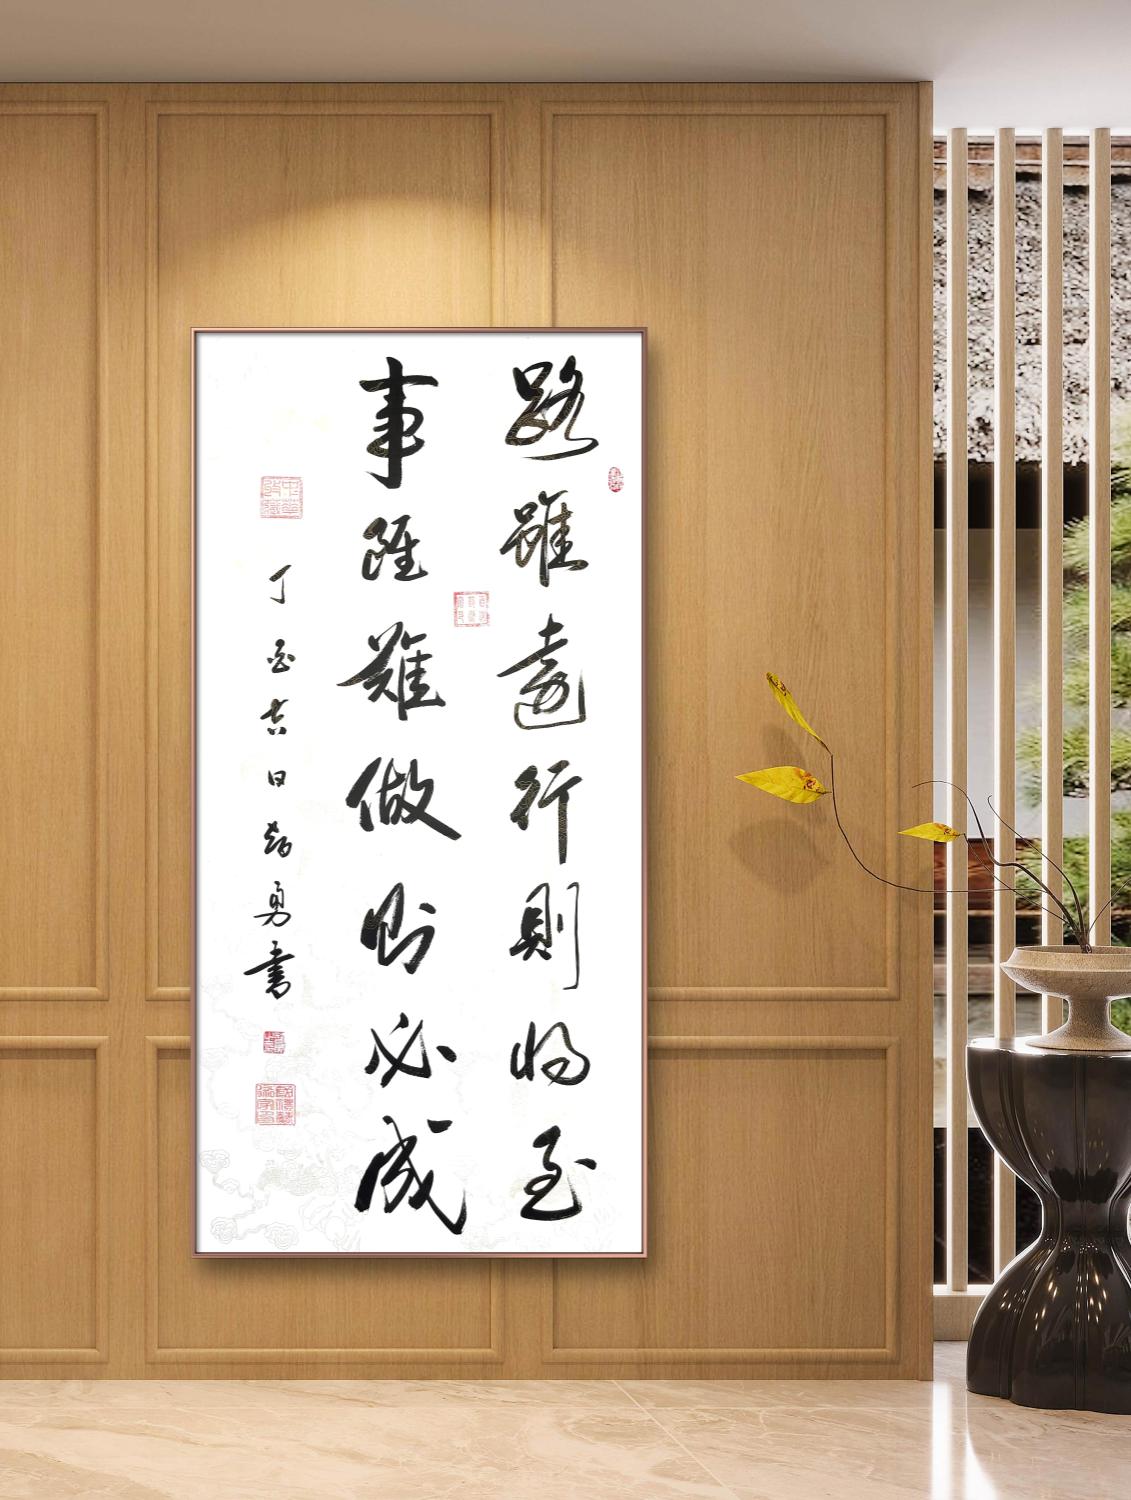 路雖遠行則将至
事雖難做则必成
丁酉吉日 勇書